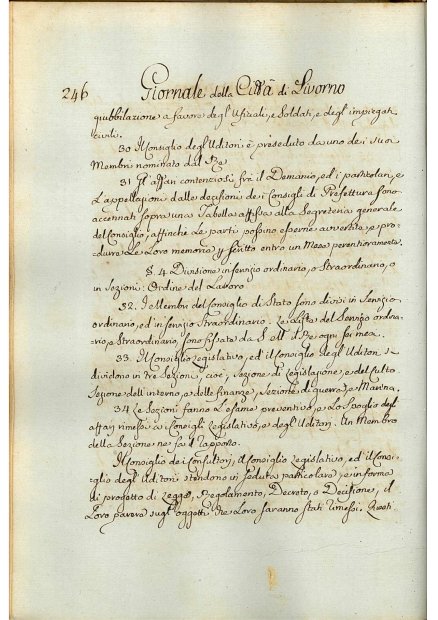 246 Giornale della Città di Livorno
giubbilazione a favore degl'Ufiziali, e Soldati, e degl'impiegati
civili.
30 Il Consiglio degl'Uditori è preseduto da uno dei suoi
Membri nominato dal Re
31 Gl'affari contenziosi frà il Demanio, ed i particolari, e
L'appellazioni dalle decisioni dei Consigli di Prefettura sono
accennati sopra una Tabella affissa alla Segreteria generale
del Consiglio, affinche Le parti possino esserne avvertite, e pro-
durre Le Loro memorie p. scritto entro un Mese perentoriamente.
§. 4 Divisione in servizio ordinario, o Straordinario, o
in Sezioni: Ordine del Lavoro
32. I Membri del Consiglio di Stato sono divisi in Servizio
ordinario, ed in servizio Straordinario. Le Liste del Servizio ordina-
rio, e Straordinario, sono fissate da S. M. il Re ogni sei mesi.
33. Il Consiglio Legislativo, ed il Consiglio degl'Uditori si
dividono in tre Sezioni, cioè, Sezione di Legislazione, e del Culto
Sezione dell'interno, e delle finanze, Sezione di guerra, e Marina.
34 Le Sezioni fanno L'esame preventivo, e Lo Spoglio degl'
affari rimessi ai Consigli Legislativo, e degl'Uditori. Un Membro
della Sezione ne fa il rapporto.
Il Consiglio dei Consultori, il Consiglio Legislativo, ed il Consi-
glio degl'Uditori stendono in seduta particolare, e in forma
di progetto di Legge, Regolamento, Decreto, o Decisione, il
Loro parere sugl'oggetti che Loro saranno stati rimessi. Questi